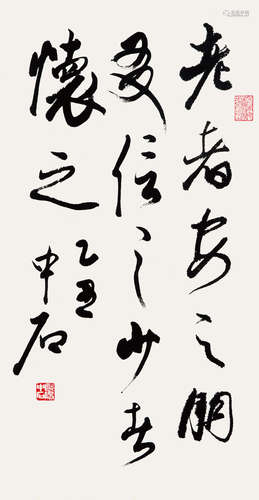 老者安之朋
友信之少者
懷之
乙丑
中石